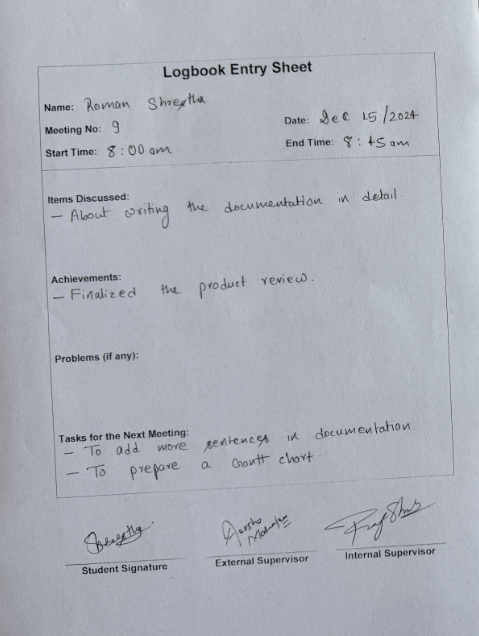 Logbook Entry Sheet
Name: Roman Shrestha
Meeting No: 9
Date: Dec 15/2024
Start Time: 8:00 am
End Time: 8:45 am
Items Discussed:
- About writing the documentation in detail
Achievements:
- Finalized the product review.
Problems (if any):
Tasks for the Next Meeting:
- To add more sentences in documentation
- To prepare a Gantt chart
Shrestha
Student Signature
External Supervisor
Internal Supervisor